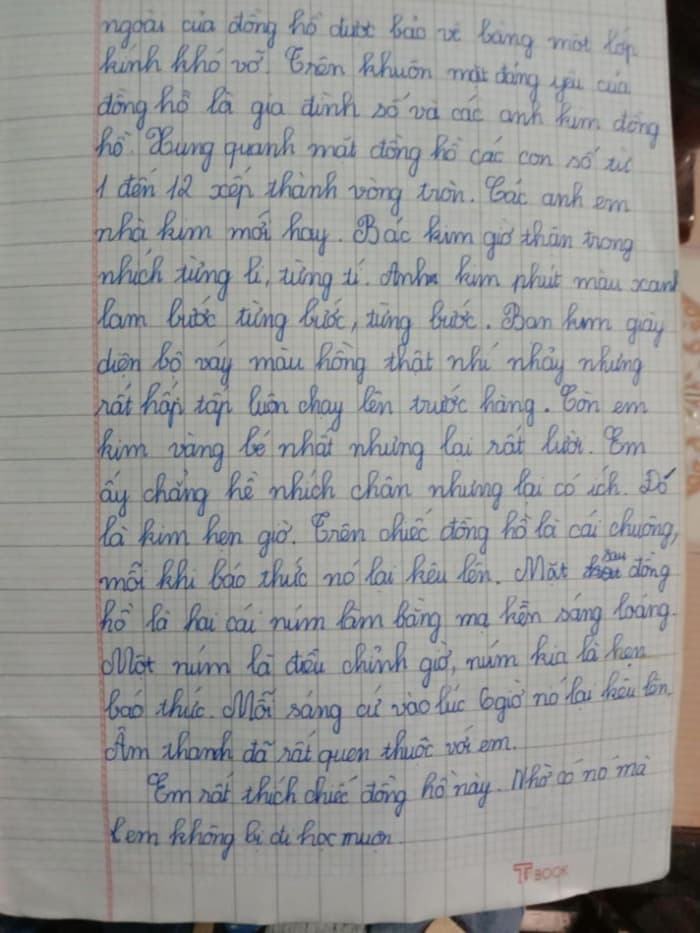 ngoài của đồng hồ được bảo vệ bằng một lớp
kính khó vỡ. Trên khuôn mặt đáng yêu của
đồng hồ là gia đình số và các anh kim đồng
hồ. Xung quanh mặt đồng hồ các con số từ
1 đến 12 xếp thành vòng tròn. Các anh em
nhà kim mới hay. Bác kim giờ thận trọng
nhích từng li, từng tí. Anh kim phút màu xanh
lam bước từng bước, từng bước. Bạn kim giây
diện bộ váy màu hồng thật nhí nhảy nhưng
rất hấp tấp luôn chạy lên trước hàng. Còn em
kim vàng bé nhất nhưng lại rất lười. Em
ấy chẳng hề nhích chân nhưng lại có ích. Đó
là kim hẹn giờ. Trên chiếc đồng hồ là cái chuông,
mỗi khi báo thức nó lại kêu lên. Mặt sau đồng
hồ là hai cái núm làm bằng mạ kền sáng loáng.
Một núm là điều chỉnh giờ, núm kia là hẹn
báo thức. Mỗi sáng cứ vào lúc 6 giờ nó lại kêu lên.
Âm thanh đã rất quen thuộc với em.
Em rất thích chiếc đồng hồ này. Nhờ có nó mà
em không bị đi học muộn.
TT BOOK